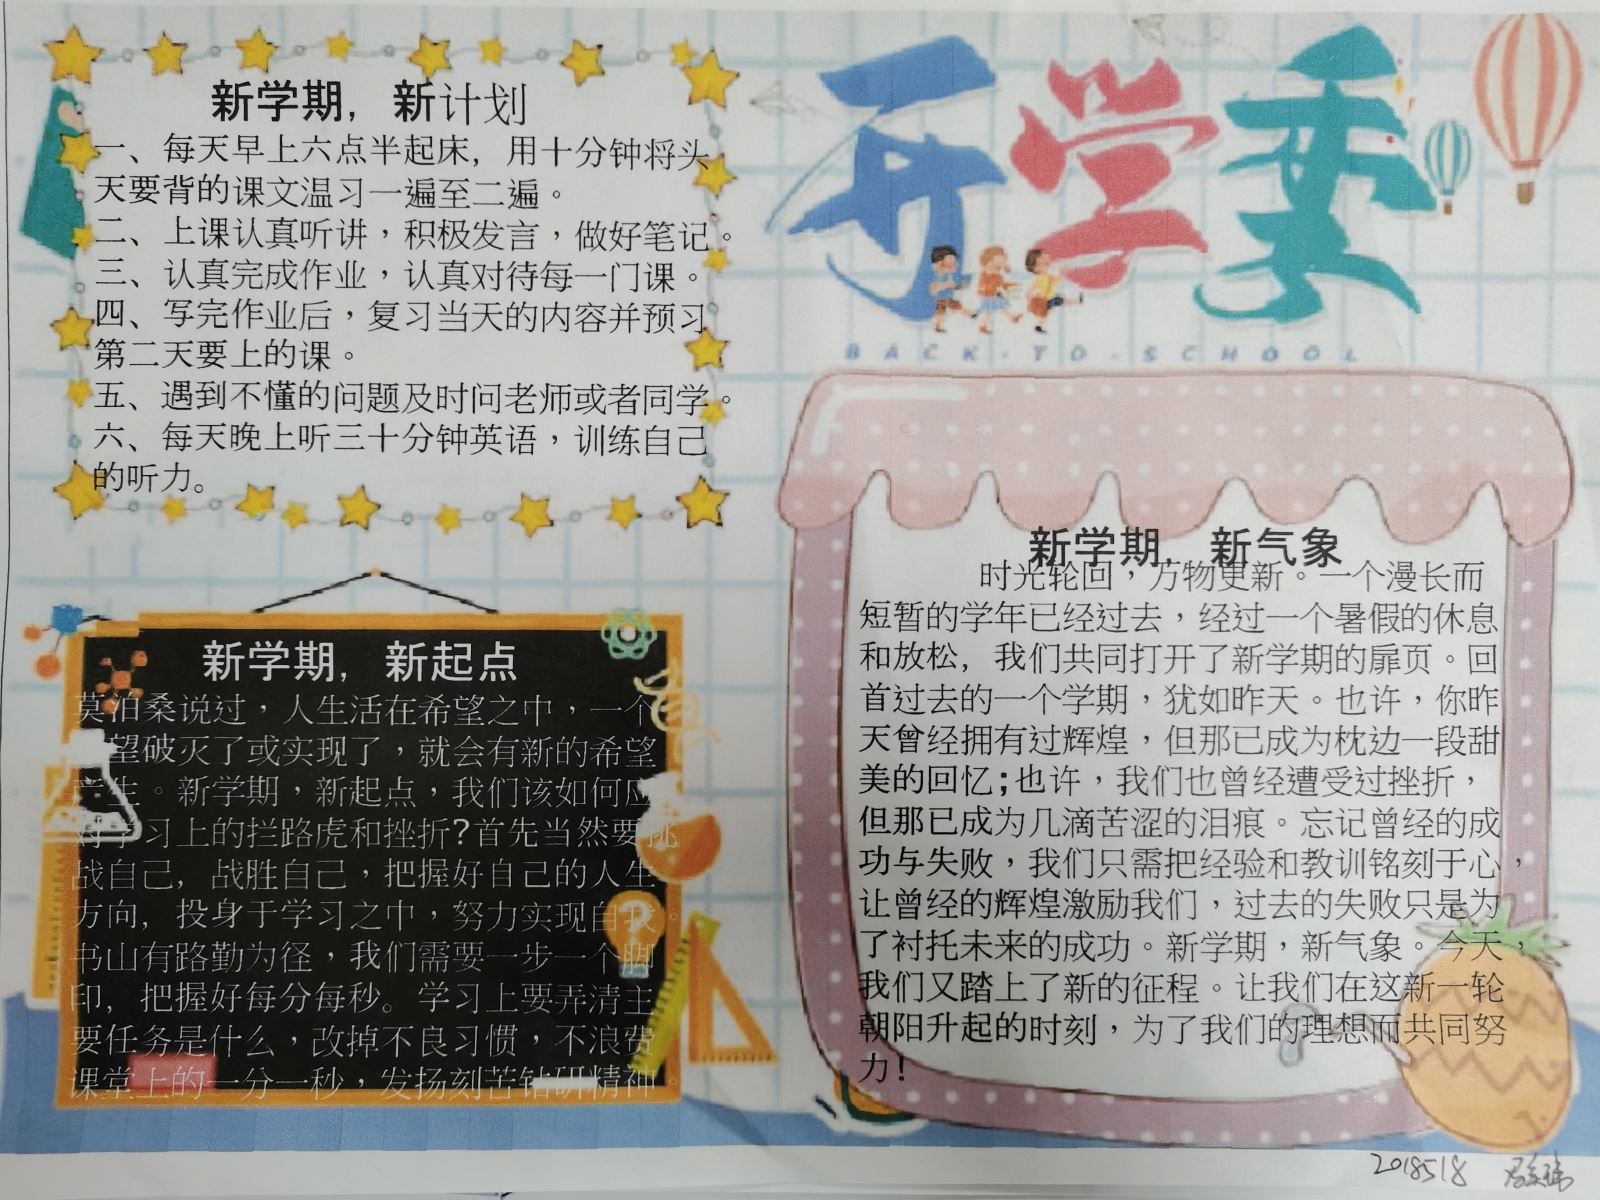 新学期，新计划
一、每天早上六点半起床，用十分钟将头
天要背的课文温习一遍至二遍。
二、上课认真听讲，积极发言，做好笔记。
三、认真完成作业，认真对待每一门课。
四、写完作业后，复习当天的内容并预习
第二天要上的课。
五、遇到不懂的问题及时问老师或者同学。
六、每天晚上听三十分钟英语，训练自己
的听力。
新学期，新起点
莫泊桑说过，人生活在希望之中，一个
望破灭了或实现了，就会有新的希望
产生。新学期，新起点，我们该如何应
对学习上的拦路虎和挫折?首先当然要挑
战自己，战胜自己，把握好自己的人生
方向，投身于学习之中，努力实现自我。
书山有路勤为径，我们需要一步一个脚
印，把握好每分每秒。学习上要弄清主
要任务是什么，改掉不良习惯，不浪费
课堂上的一分一秒，发扬刻苦钻研精神。
开学季
BACK·TO·SCHOOL
新学期，新气象
时光轮回，万物更新。一个漫长而
短暂的学年已经过去，经过一个暑假的休息
和放松，我们共同打开了新学期的扉页。回
首过去的一个学期，犹如昨天。也许，你昨
天曾经拥有过辉煌，但那已成为枕边一段甜
美的回忆;也许，我们也曾经遭受过挫折，
但那已成为几滴苦涩的泪痕。忘记曾经的成
功与失败，我们只需把经验和教训铭刻于心，
让曾经的辉煌激励我们，过去的失败只是为
了衬托未来的成功。新学期，新气象。今天，
我们又踏上了新的征程。让我们在这新一轮
朝阳升起的时刻，为了我们的理想而共同努
力!
2018518